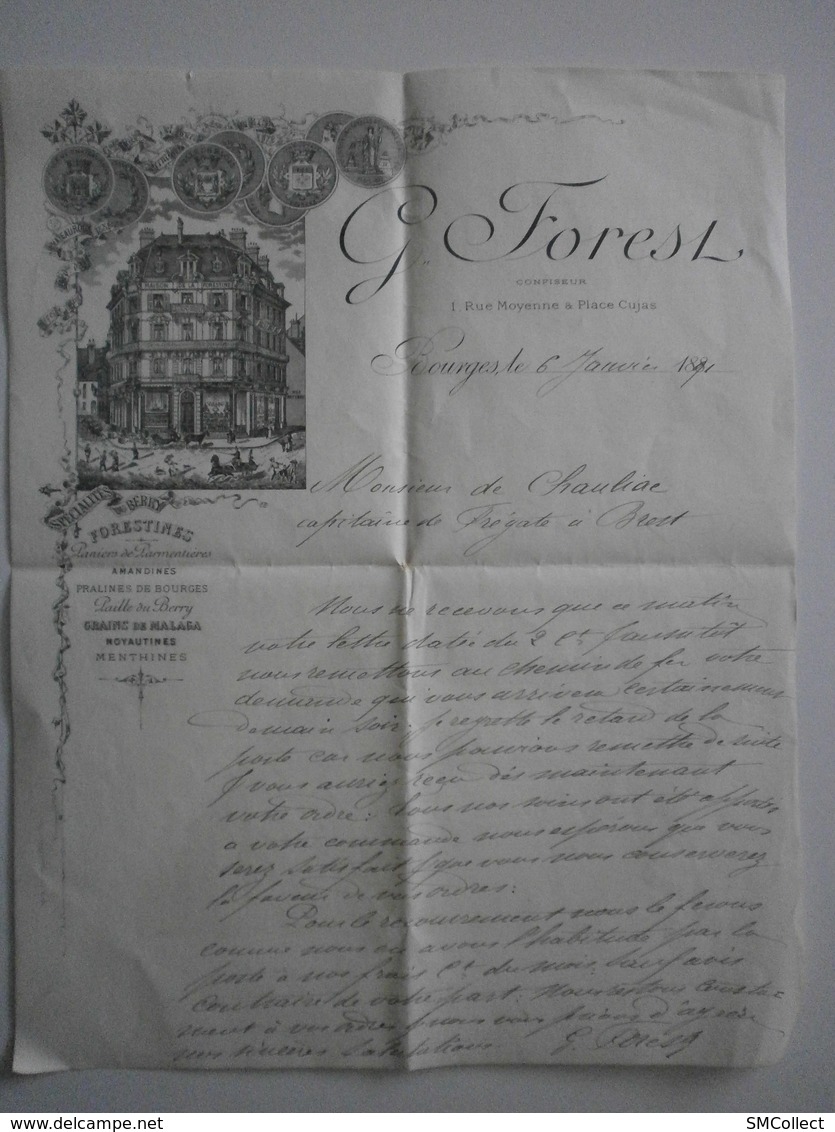 G. Forest
CONFISEUR
1, Rue Moyenne & Place Cujas
Bourges, le 6 Janvier 1891
MAISON DE LA FORESTINE
Monsieur de Chauliac
capitaine de Frégate à Brest
SPÉCIALITÉS DU BERRY
FORESTINES
Paniers de Parmentières
AMANDINES
PRALINES DE BOURGES
Paille du Berry
GRAINS DE MALAGA
NOYAUTINES
MENTHINES
Nous ne recevons que ce matin
votre lettre datée du 2 Ct. Aussitôt
nous remettons au chemin de fer votre
demande qui vous arrivera certainement
demain soir. je regrette le retard de la
poste car nous pouvions remettre de suite
& vous auriez reçu dès maintenant
votre ordre: Tous nos soins ont été apportés
à votre commande nous espérons que vous
serez satisfait & que vous nous conserverez
la faveur de vos ordres:
Pour le recouvrement nous le ferons
comme nous en avons l'habitude par la
poste à nos frais Ct du mois, sauf avis
contraire de votre part. Nous restons constam=
ment à vos ordres & nous vous prions d'agréer
nos sincères salutations. G. Forest
SMCollect
delcampe.net